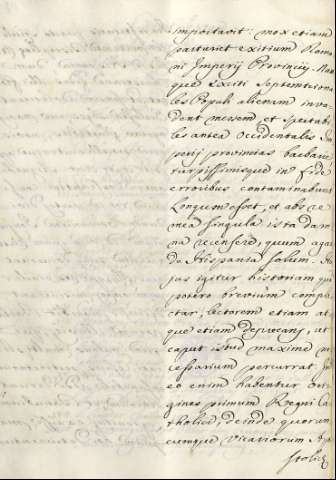 importavit: mox etiam
parturiet exitium Roma
ni Imperij Provincijs. Nam
que exciti Septemtriona
les Populi alienam inva
dent messem et spectabi
les antea Occidentales Im
perij provincias barbarie
turpissimisque in fide
erroribus contaminabunt.
Longum esset, et abs re
mea singula ista dam
na recensere, quum agam
de Hispania solum. Hu
jus igitur historiam qui
potero brevium comple
ctar, lectorem etiam at
que etiam deprecans, ut
caput istud maxime ne
cessarium percurrat. In
eo enim habentur Ori
gines primum Regni Ca
tholici, deinde quorum
cumque Vicariorum Apo
stolic